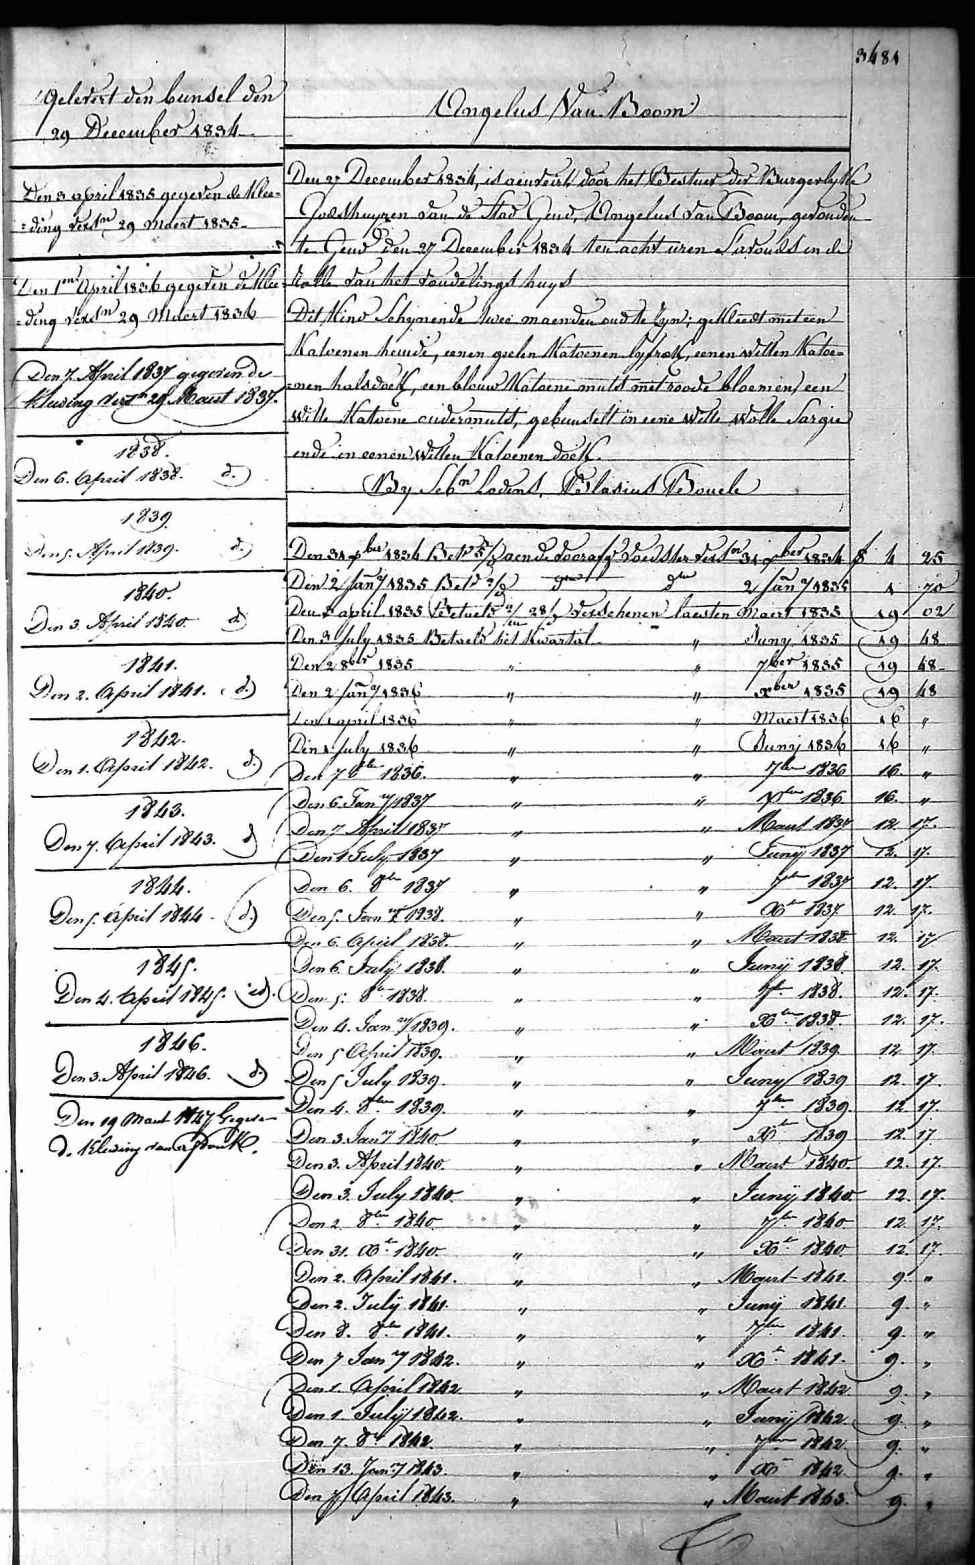 3484
Gelevert den bunsel den
29 December 1834
Den 3 april 1835 gegeven de klee=
=ding verst^n 29 Maert 1835
Den 1^en April 1836 gegeven de klee=
=ding verst^n 29 Meert 1836
Den 7. April 1837 gegeven de
kleeding verst^n 29 Maert 1837.
1838.
Den 6. April 1838. d.)
1839.
Den 5. April 1839. d.)
1840.
Den 3. April 1840. d)
1841.
Den 2. April 1841. d.)
1842.
Den 1. April 1842. d.)
1843.
Den 7. April 1843. d)
1844.
Den 5. April 1844. (d.)
1845.
Den 4. April 1845. d.
1846.
Den 3. April 1846. d.)
Den 19 Maart 1847 Gegeven
d. Kleeding van
Angelus Van Boom
Den 27 December 1834, is door het Bestuer der Burgerlyke
Godshuyzen van de Stad Gend, Angelus van Boom, gevonden
te Gend den 27 December 1834 ten acht uren S'avonds in de
van het vondelings huys
Dit kind Schynende twee maenden oud te Zyn; gekleedt met een
Katoenen hemde, eenen geelen Katoenen lyfrok, eenen witten Katoe=
=nen halsdoek, een blauw Katoene muts met roode bloemen, een
Witte Katoene ondermuts, gebunselt in eene Witte Wolle Sargie
ende in eenen Witten Katoenen doek.
By Blasius
Den 31 x^ber 1834 Bet^d 5/ aende voorafg voedster verst^n 31 x^ber 1834 f 4 25
Den 2 Jan^y 1835 Bet^d d^o d^o 2 Jan^y 1835 1 70
Den 3 april 1835 Betaelt verschenen laesten Maert 1835 19 02
Den 3 July 1835 Betaeld het Kwartal " Juny 1835 19 48
Den 2 8^ber 1835 " " 7^ber 1835 19 48
Den 2 Jan^y 1836 " " x^ber 1835 19 48
Den 1 april 1836 " " Maert 1836 16 "
Den 1 July 1836 " " Juny 1836 16 "
Den 7 8^ber 1836. " " 7^ber 1836 16. "
Den 6. Jan^y 1837 " " X^ber 1836 16. "
Den 7 April 1837 " " Maert 1837 12. 17.
Den 1 July 1837 " " Juny 1837 12. 17.
Den 6. 8^ber 1837 " " 7^ber 1837 12. 17
Den 5. Jan^y 1838. " " X^r 1837 12. 17.
Den 6. April 1838. " " Maert 1838 12. 17
Den 6. July 1838. " " Juny 1838. 12. 17.
Den 5. 8^r 1838. " " 7^r 1838. 12. 17.
Den 4. Jan^y 1839. " " X^ber 1838. 12. 17.
Den 5 April 1839. " " Maert 1839 12. 17.
Den 5 July 1839. " " Juny 1839 12. 17.
Den 4. 8^ber 1839. " " 7^ber 1839. 12. 17.
Den 3. Jan^y 1840. " " X^r 1839 12. 17
Den 3. April 1840. " " Maert 1840. 12. 17.
Den 3. July 1840. " " Juny 1840. 12. 17.
Den 2 8^ber 1840. " " 7^r 1840 12. 17.
Den 31. X^r 1840. " " X^r 1840. 12. 17.
Den 2. April 1841. " " Maert 1841. 9. "
Den 2. July 1841. " " Juny 1841. 9. "
Den 8. 8^r 1841. " " 7^ber 1841. 9. "
Den 7 Jan^y 1842. " " X^r 1841. 9. "
Den 1. April 1842 " " Maert 1842 9. "
Den 1 July 1842. " " Juny 1842. 9. "
Den 7. 8^r 1842. " " 7^r 1842 9. "
Den 13. Jan^y 1843. " " X^r 1842 9. "
Den 7 April 1843. " " Maert 1843. 9. "